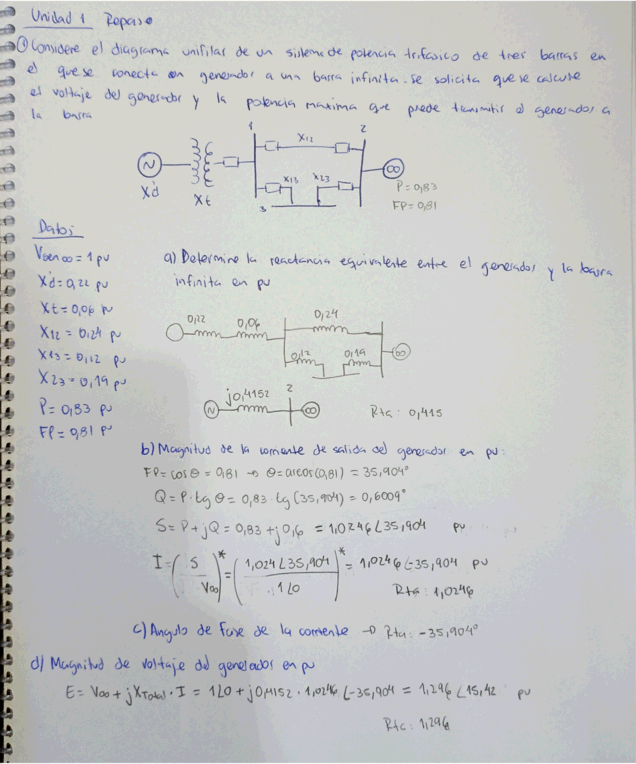 Unidad 1 Repaso
① Considere el diagrama unifilar de un sistema de potencia trifasico de tres barras en
el que se conecta un generador a una barra infinita. Se solicita que se calcule
el voltaje del generador y la potencia maxima que puede transmitir el generador a
la barra
1 X12 2
N X13 X23 ∞
X'd Xt 3 P = 0,83
FP = 0,81
Datos
Vgen∞ = 1 pu
X'd = 0,22 pu
Xt = 0,06 pu
X12 = 0,24 pu
X13 = 0,12 pu
X23 = 0,19 pu
P = 0,83 pu
FP = 0,81 pu
a) Determine la reactancia equivalente entre el generador y la barra
infinita en pu
0,22 0,06 0,24
0,12 0,19 ∞
j0,4152 2
N ∞ Rta: 0,415
b) Magnitud de la corriente de salida del generador en pu:
FP = cos θ = 0,81 → θ = arcos(0,81) = 35,904°
Q = P · tg θ = 0,83 · tg (35,904) = 0,6009°
S = P + jQ = 0,83 + j0,6 = 1,0246 ∠35,904 pu
I = (S / V∞)* = (1,024 ∠35,904 / 1∠0)* = 1,0246 ∠-35,904 pu
Rta: 1,0246
c) Angulo de fase de la corriente → Rta: -35,904°
d) Magnitud de voltaje del generador en pu
E = V∞ + jXTotal · I = 1∠0 + j0,4152 · 1,0246 ∠-35,904 = 1,296 ∠15,42 pu
Rta: 1,296